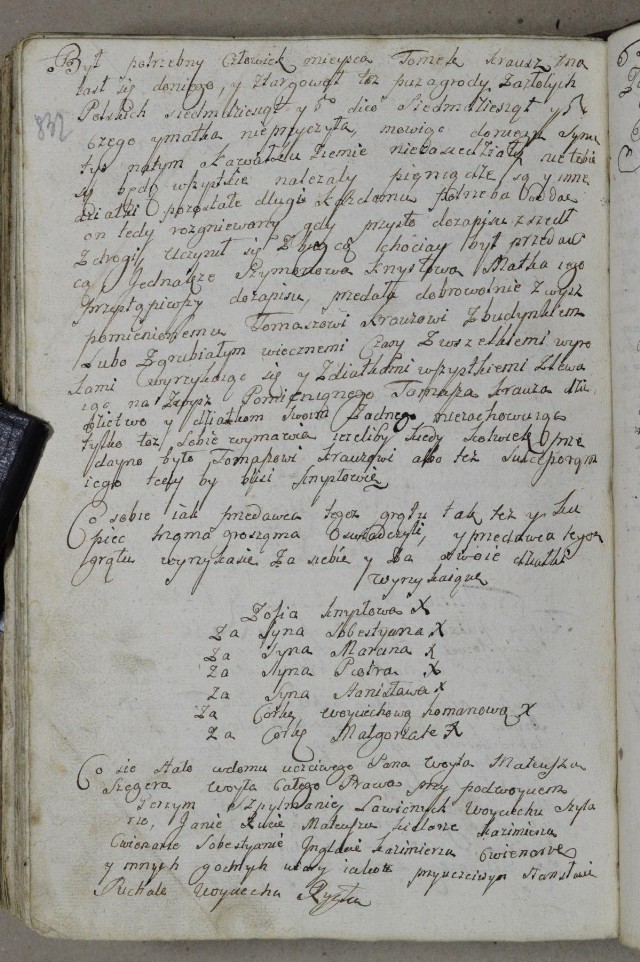 Był potrzebny Człowiek mieysca Tomek Krausz zna
lasł się doniego, y ztargował toż puzagrody Zazłotych
832
Polskich siedmdziesiąt y 5 dico Siedmdziesiąt y 5
Czego ymatka nieprzyczyła, mowiąc do
tyś natym kawałku Ziemie niezasiedziały, nie tobie
są będą wszystkie należały pieniądze są y inne
dziatki pozostałe długi każdemu potrzeba Oddac
on tedy rozgniewany gdy przysło dozapisu zszedł
Zdrogi, uczynił się Zbiegcą chociay był przedaw
cą, Jednakże Szymonowa Knysłowa Matka iego
przystąpiwszy dozapisu, przedała dobrowolnie zwysz
pomienionemu Tomaszowi Krauzowi Zbudynkiem
Lubo Zgrubiałym wiecznemi Czasy Zwszelkiemi wyro
kami wyrzykaiąc się y Zdiatkami wszystkiemi Zlewa
iąc na Zwysz Pomienignego Tomasza Krauza dzie
dzictwo y dziatkom swoim Żadnego niezachowuiąc
tylko toż sobie wymawia ieżeliby kiedy kolwiek
dayno było Tomaszowi Krauzowi albo też Sukcesorom
iego teby by bliśi Knysłowie
Co sobie iak przedawca tegoż grątu tak też y Ku
piec trzymá groszyma Oswiadczyli, y przedawca tegosz
grątu wyrzykasię Za siebie y Za swoie dziatki
Wyrzykaiąca
Zofia Knysłowa X
Za Syna Sobestyiana X
Za Syna Marcina X
Za Syna Piotra X
Za Syna Stanisława X
Za Corkę Woyciechową Romanową X
Za Corkę Małgorzate X
Co się stało wdomu uczciwego Pana Woyta Mateusza
Szegera Woyta Całego Prawa przy podwoycem
Jerzym Ławicznych Woyciechu Szyla
rze, Janie Mateuszu Kazimierzu
Cwienarze Sobestyanie Kazimierzu Cwienarze
y innych godnych wiary iako przyuczciwym Stanisławie
Puchale Woyciecha Ryzla